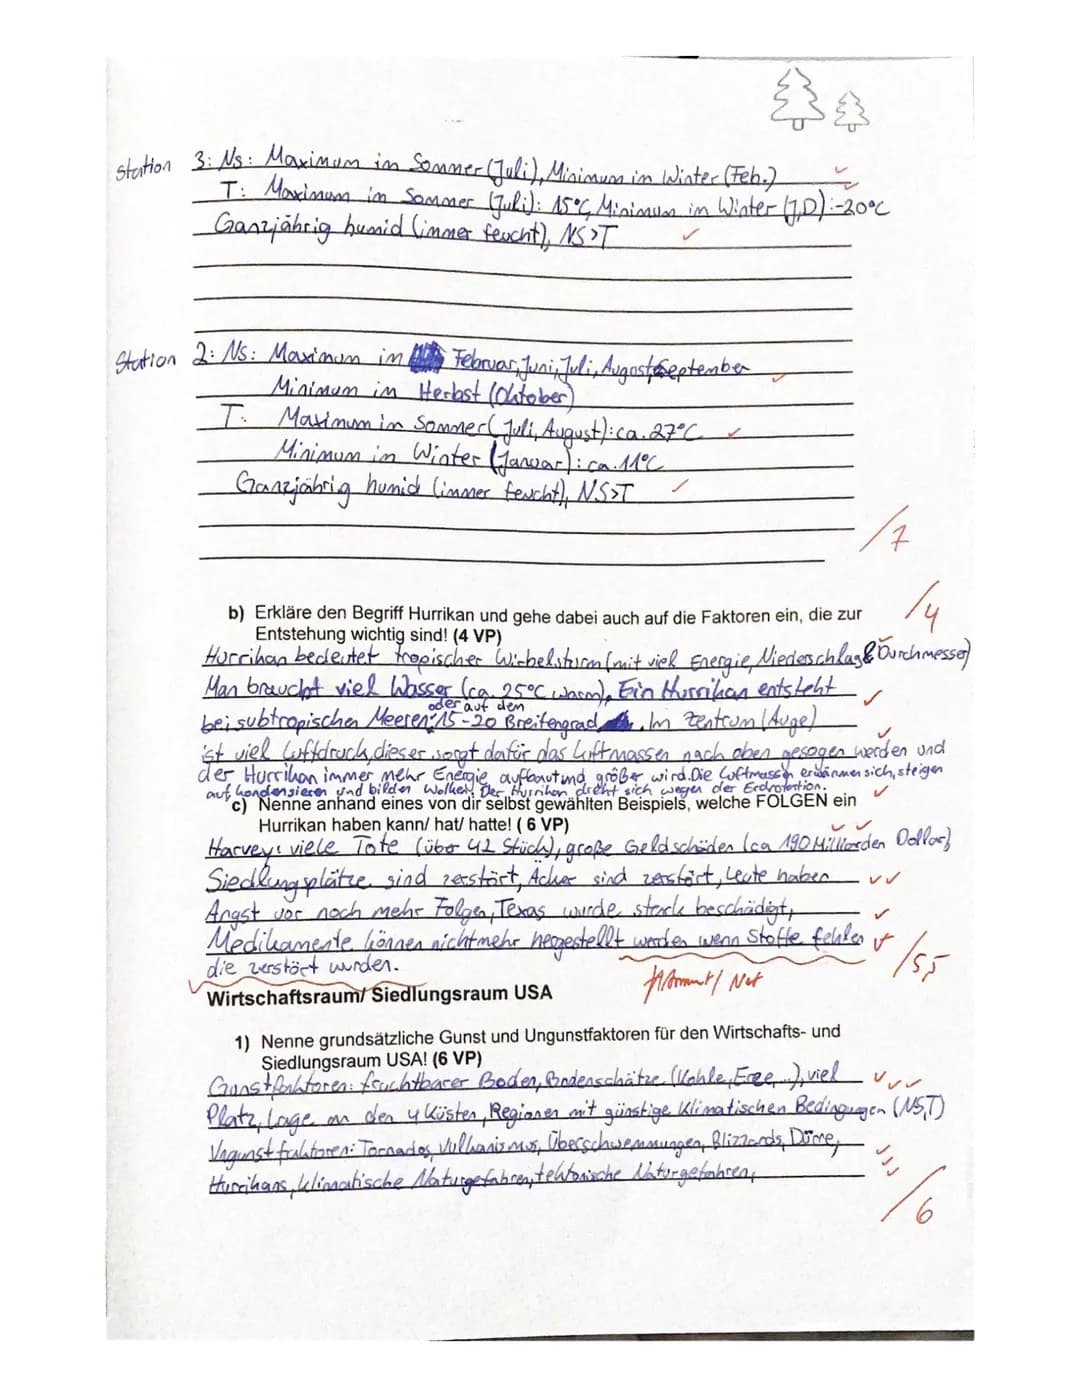 Station 3: Ns: Maximum im Sommer (Juli), Minimum im Winter (Feb.)
T: Maximum im Sommer (Juli): 15°C, Minimum im Winter (J,D): -20°C
Ganzjährig humid (immer feucht), NS>T
Station 2: Ns: Maximum im Februar, Juni, Juli, August, September
Minimum im Herbst (Oktober)
T: Maximum im Sommer (Juli, August): ca. 27°C
Minimum im Winter (Januar): ca. 11°C
Ganzjährig humid (immer feucht), NS>T
/7
/4
b) Erkläre den Begriff Hurrikan und gehe dabei auch auf die Faktoren ein, die zur
Entstehung wichtig sind! (4 VP)
Hurrikan bedeutet tropischer Wirbelsturm (mit viel Energie, Niederschlag & Durchmesser)
Man braucht viel Wasser (ca. 25°C warm). Ein Hurrikan entsteht
oder auf dem
bei subtropischen Meeren 15-20 Breitengrad. Im Zentrum (Auge)
ist viel Luftdruck, dieser sorgt dafür das Luftmassen nach oben gesogen werden und
der Hurrikan immer mehr Energie aufbaut und größer wird. Die Luftmassen erwärmen sich, steigen
auf, kondensieren und bilden Wolken. Der Hurrikan dreht sich wegen der Erdrotation.
c) Nenne anhand eines von dir selbst gewählten Beispiels, welche FOLGEN ein
Hurrikan haben kann/ hat/ hatte! ( 6 VP)
Harvey: viele Tote (über 42 Stück), große Geldschäden (ca 190 Milliarden Dollar),
Siedlungsplätze sind zerstört, Äcker sind zerstört, Leute haben
Angst vor noch mehr Folgen, Texas wurde stark beschädigt,
Medikamente können nicht mehr hergestellt werden wenn Stoffe fehlen
die zerstört wurden.
/5,5
Wirtschaftsraum/ Siedlungsraum USA
1) Nenne grundsätzliche Gunst und Ungunstfaktoren für den Wirtschafts- und
Siedlungsraum USA! (6 VP)
Gunstfaktoren: fruchtbarer Boden, Bodenschätze (Kohle, Erze,...), viel
Platz, Lage an den 4 Küsten, Regionen mit günstige klimatischen Bedingungen (NS,T)
Ungunstfaktoren: Tornados, Vulkanismus, Überschwemmungen, Blizzards, Dürre,
Hurrikans, klimatische Naturgefahren, tektonische Naturgefahren,
/6